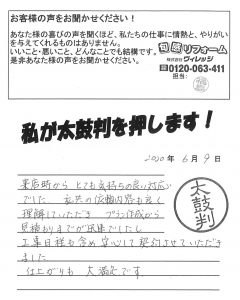 お客様の声をお聞かせください！
あなた様の喜びの声を聞くほど、私たちの仕事に情熱と、やりがい
を与えてくれるものはありません。
いいこと・悪いこと、どんなことでも結構です。
是非あなた様の声をお聞かせください。
旬感リフォーム
株式会社ヴィレッジ
0120-063-411
担当:
私が太鼓判を押します！
2020年 6月 9日
来店時から とても気持ちの良い対応
でした 私共の依頼内容も良く
理解していただき プラン作成から
見積おりまでが迅速でしたし
工事日程も含め安心して契約させていただき
ました
仕上がりも 大満足です
太鼓判